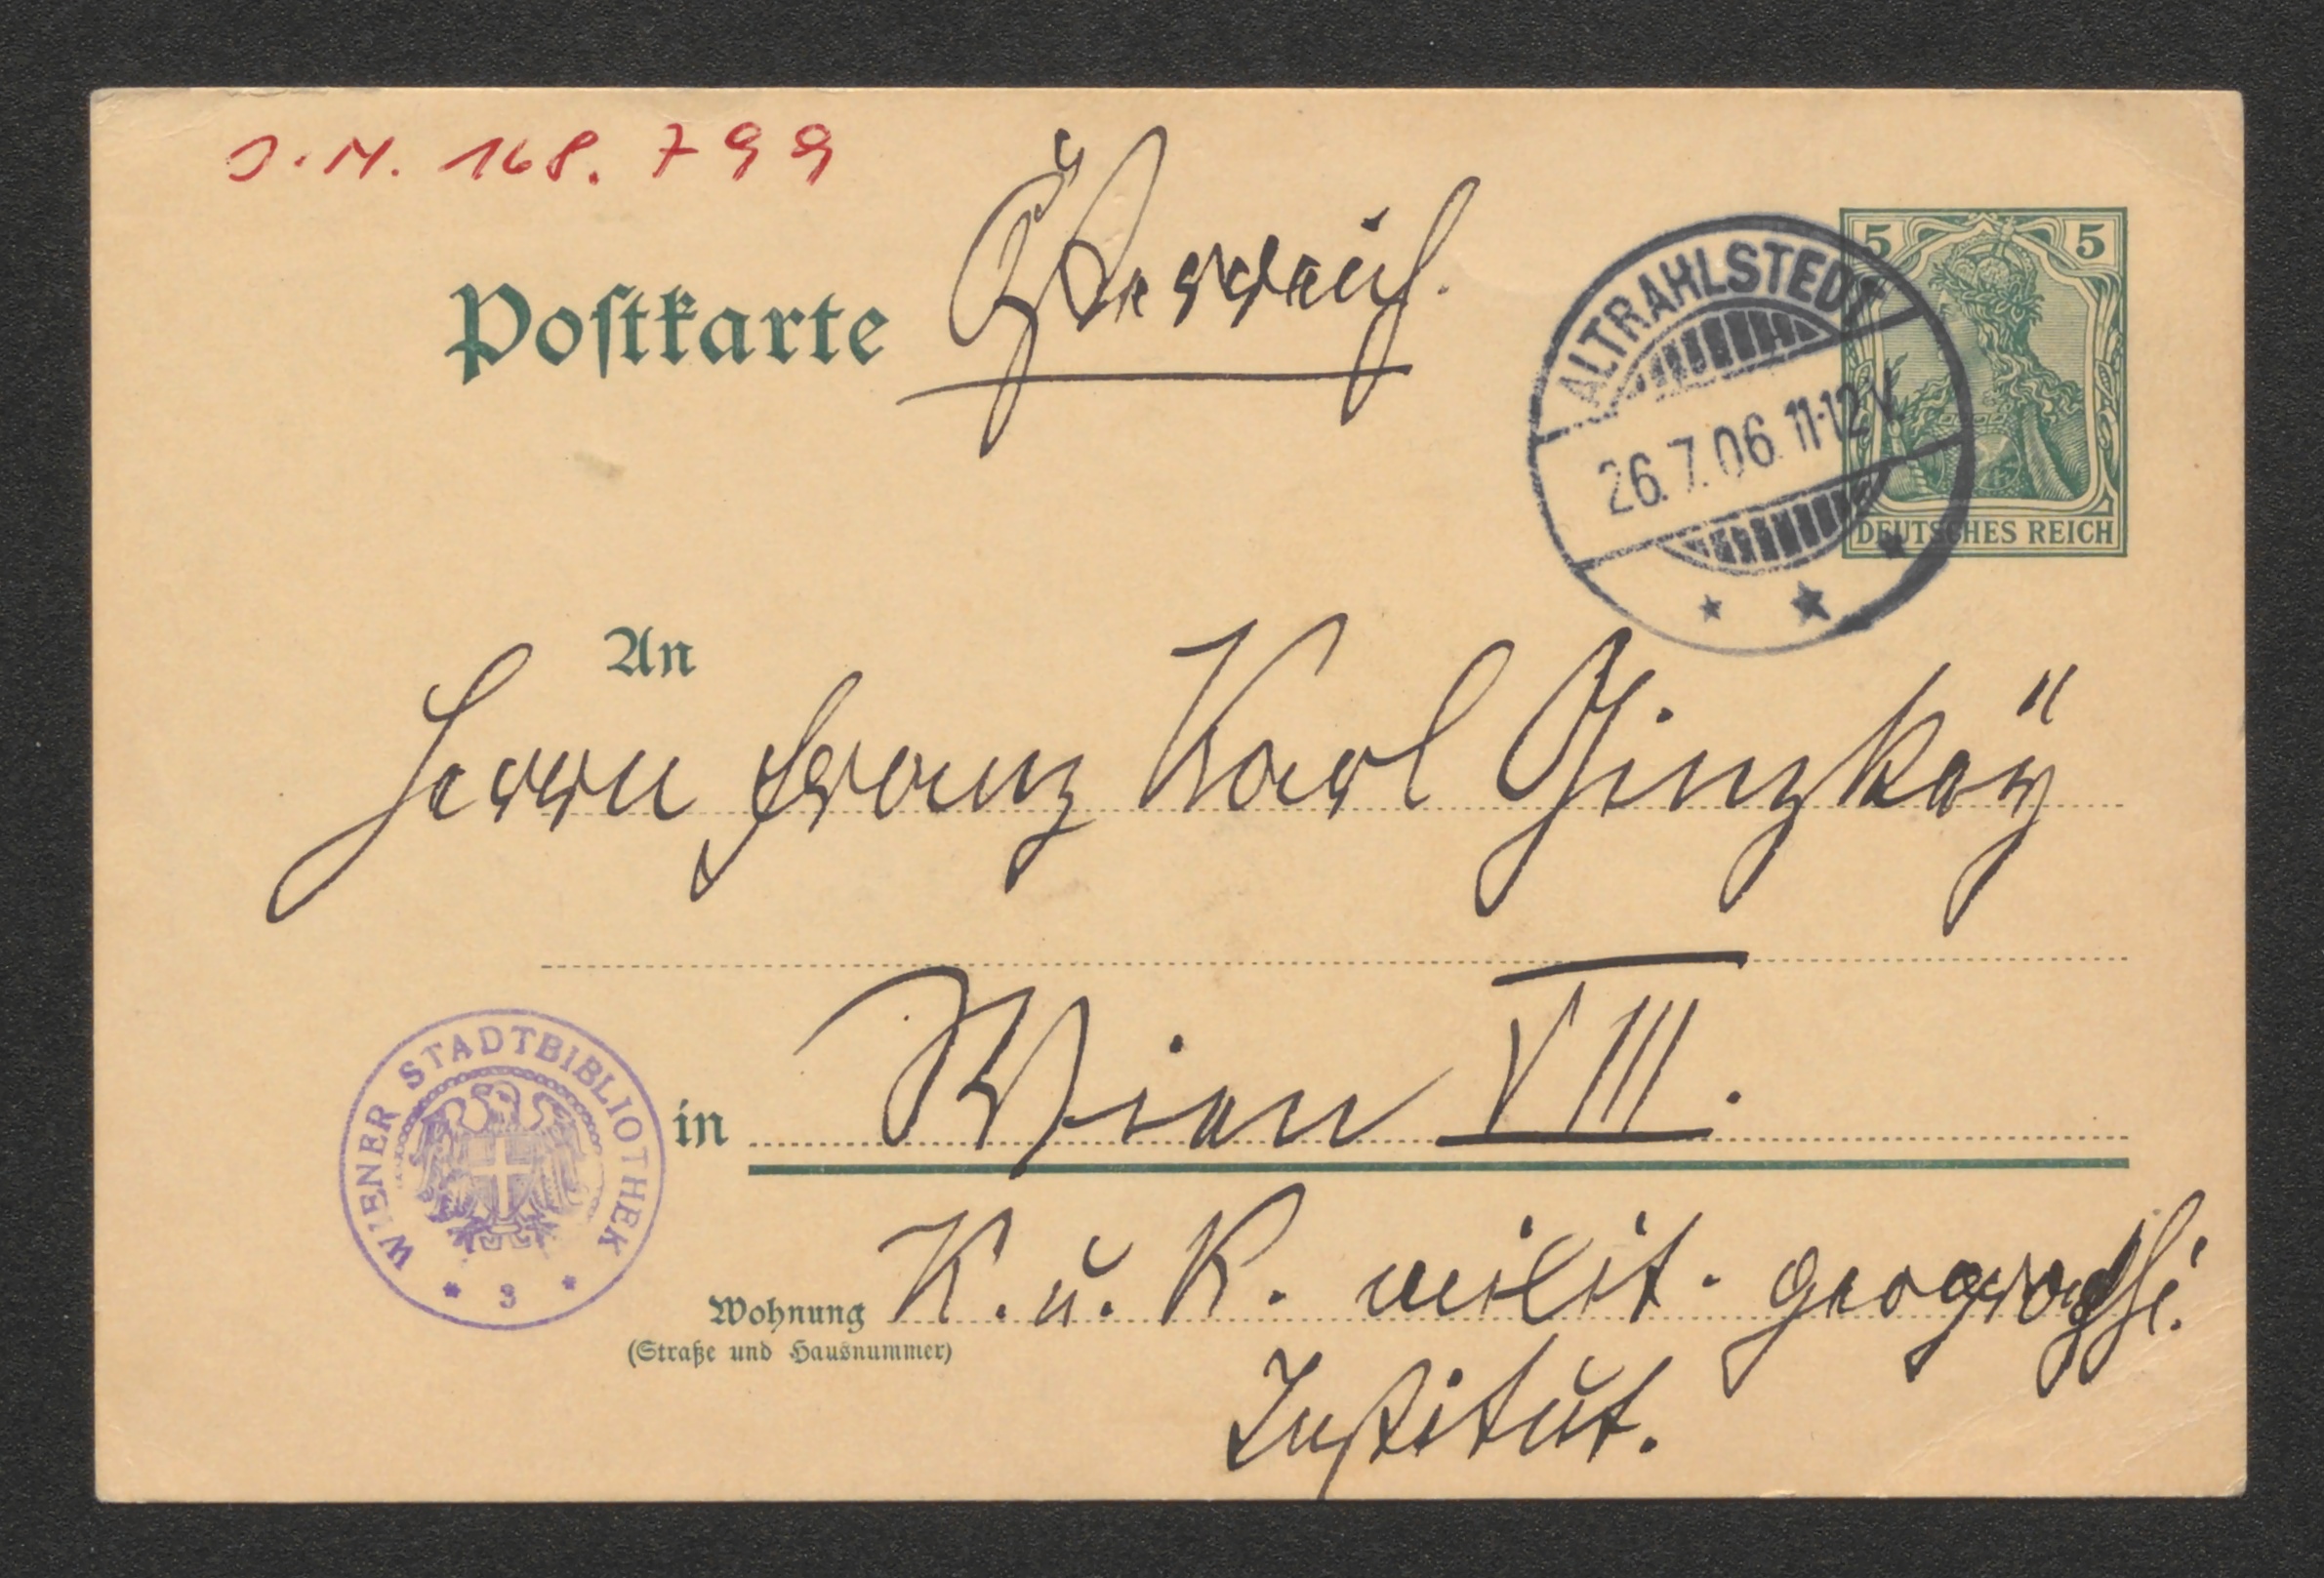 J.N. 168.799
Postkarte Österreich.
ALTRAHLSTEDT
26.7.06. 11-12V.
5 5
DEUTSCHES REICH
An
Herrn Franz Karl Ginzkey
in Wien VIII.
WIENER STADTBIBLIOTHEK
* 3 *
Wohnung K. u. K. milit. geographi.
(Straße und Hausnummer)
Institut.